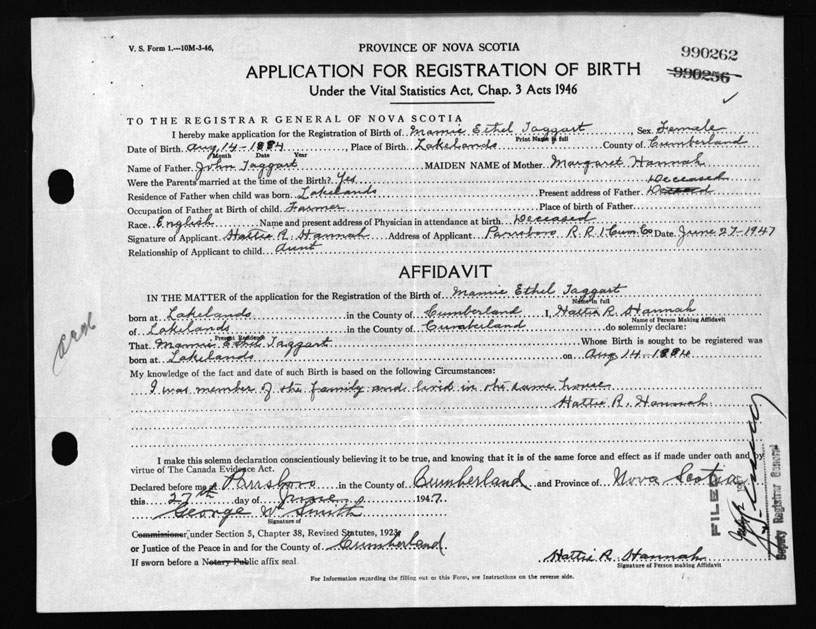 V. S. Form 1.—10M-3-46,
PROVINCE OF NOVA SCOTIA
990262
APPLICATION FOR REGISTRATION OF BIRTH
990256
Under the Vital Statistics Act, Chap. 3 Acts 1946
TO THE REGISTRAR GENERAL OF NOVA SCOTIA
I hereby make application for the Registration of Birth of Mamie Ethel Taggart, Sex Female
Print Name in full
Date of Birth Aug 14-1884, Place of Birth Lakelands County of Cumberland
Month Date Year
Name of Father John Taggart MAIDEN NAME of Mother Margaret Hannah
Were the Parents married at the time of the Birth? Yes Deceased
Residence of Father when child was born Lakelands Present address of Father
Occupation of Father at Birth of child Farmer Place of birth of Father
Race English Name and present address of Physician in attendance at birth Deceased
Signature of Applicant Hattie R. Hannah Address of Applicant Parrsboro R.R.1 Cum. Co Date June 27-1947
Relationship of Applicant to child Aunt
AFFIDAVIT
IN THE MATTER of the application for the Registration of the Birth of Mamie Ethel Taggart
Name in full
born at Lakelands in the County of Cumberland I, Hattie R. Hannah
Name of Person Making Affidavit
of Lakelands in the County of Cumberland do solemnly declare:
Present Residence
That Mamie Ethel Taggart Whose Birth is sought to be registered was
born at Lakelands on Aug 14-1884
My knowledge of the fact and date of such Birth is based on the following Circumstances:
I was member of the family and lived in the same house
Hattie R. Hannah
I make this solemn declaration conscientiously believing it to be true, and knowing that it is of the same force and effect as if made under oath and by
virtue of The Canada Evidence Act.
Declared before me at Parrsboro in the County of Cumberland and Province of Nova Scotia
this 27th day of June 1947.
George W. Smith
Signature of
Commissioner, under Section 5, Chapter 38, Revised Statutes, 1923
or Justice of the Peace in and for the County of Cumberland
If sworn before a Notary Public affix seal
Hattie R. Hannah
Signature of Person making Affidavit
For Information regarding the filling out of this Form, see Instructions on the reverse side.
FILED
Deputy Registrar General